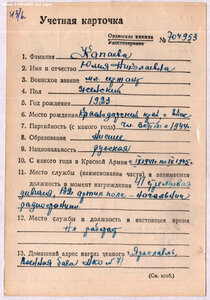 Учетная карточка
Орденская книжка
Удостоверение № 704953
1. Фамилия Капаева
2. Имя и отчество Юлия Николаевна
3. Воинское звание мл. сержант
4. Пол женский
5. Год рождения 1923
6. Место рождения Краснодарский край, г.
7. Партийность (с какого года) чл. с 1944
8. Образование высшее
9. Национальность русская
10. С какого года в Красной Армии с 1941 по 1945
11. Место службы (наименование части) и занимаемая
должность в момент награждения 41 стрелковая
дивизия, артил. полк начальник
радиостанции
12. Место службы и должность в настоящее время
Не работает
13. Домашний адрес г. Ярославль,
(См. н/об.)